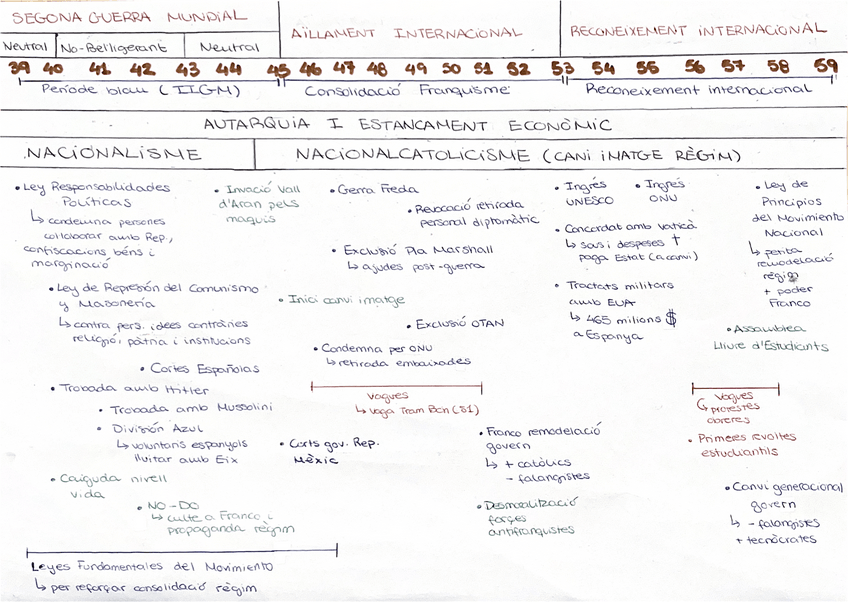 SEGONA GUERRA MUNDIAL
AÏLLAMENT INTERNACIONAL
RECONEIXEMENT INTERNACIONAL
Neutral
No-Bel·ligerant
Neutral
39 40 41 42 43 44 45 46 47 48 49 50 51 52 53 54 55 56 57 58 59
Període blau (IIGM)
Consolidació Franquisme
Reconeixement internacional
AUTARQUIA I ESTANCAMENT ECONÒMIC
NACIONALISME
NACIONALCATOLICISME (CANI IMATGE RÈGIM)
• Ley Responsabilidades
Políticas
↳ condemna persones
col·laborar amb Rep.,
confiscacions béns i
marginació
• Ley de Represión del Comunismo
y Masonería
↳ contra pers. idees contràries
religió, pàtria i institucions
• Cortes Españolas
• Trobada amb Hitler
• Trobada amb Mussolini
• División Azul
↳ voluntaris espanyols
lluitar amb Eix
• Caiguda nivell
vida
• NO-DO
↳ culte a Franco i
propaganda règim
Leyes Fundamentales del Movimiento
↳ per reforçar consolidació règim
• Invació Vall
d'Aran pels
maquis
• Gerra Freda
• Revocació retirada
personal diplomàtic
• Exclusió Pla Marshall
↳ ajudes post-guerra
• Inici canvi imatge
• Exclusió OTAN
• Condemna per ONU
↳ retirada embaixades
Vagues
↳ Vaga Tram Bcn (51)
• Corts gov. Rep.
Mèxic
• Franco remodelació
govern
↳ + catòlics
- falangistes
• Desmoralització
forçes
antifranquistes
• Ingrés
UNESCO
• Ingrés
ONU
• Concordat amb Vaticà
↳ sous i despeses †
paga Estat (a canvi)
• Tractats militars
amb EUA
↳ 465 milions $
a Espanya
• Ley de
Principios
del Movimiento
Nacional
↳ petita
remodelació
règim
+ poder
Franco
• Assamblea
Lliure d'Estudiants
Vagues
↳ protestes
obreres
• Primeres revoltes
estudiantils
• Canvi generacional
govern
↳ - falangistes
+ tecnòcrates